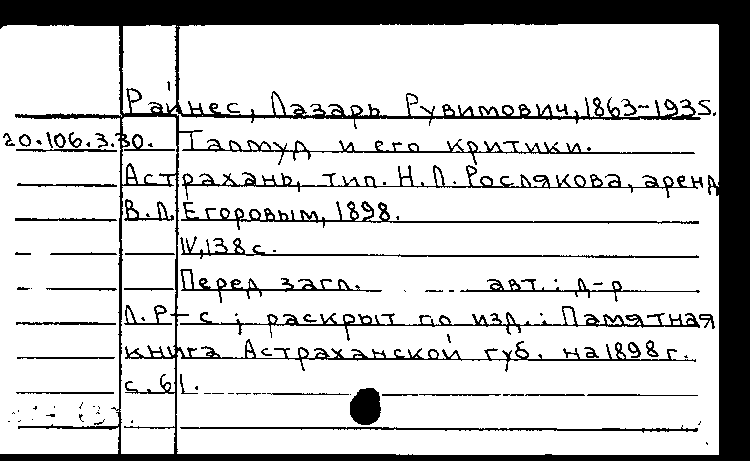 Райнес, Лазарь Рувимович, 1863-1935.
20.106.3.30. Талмуд и его критики.
Астрахань, тип. Н.Л. Рослякова, аренд
В.Л. Егоровым, 1898.
IV, 138 с.
Перед загл. авт.: д-р
Л. Р-с ; раскрыт по изд.: Памятная
книга Астраханской губ. на 1898 г.
с. 61.